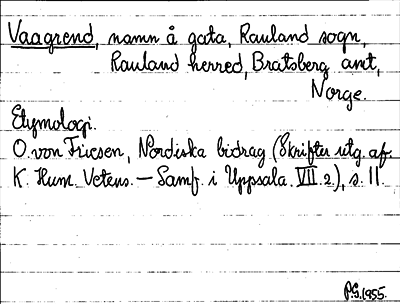 Vaagrend, namn å gata, Rauland sogn,
Rauland herred, Bratsberg amt,
Norge.
Etymologi.
O. von Friesen, Nordiska bidrag (Skrifter utg. af
K. Hum. Vetens. – Samf. i Uppsala. VII. 2), s. 11.
P.G. 1955.